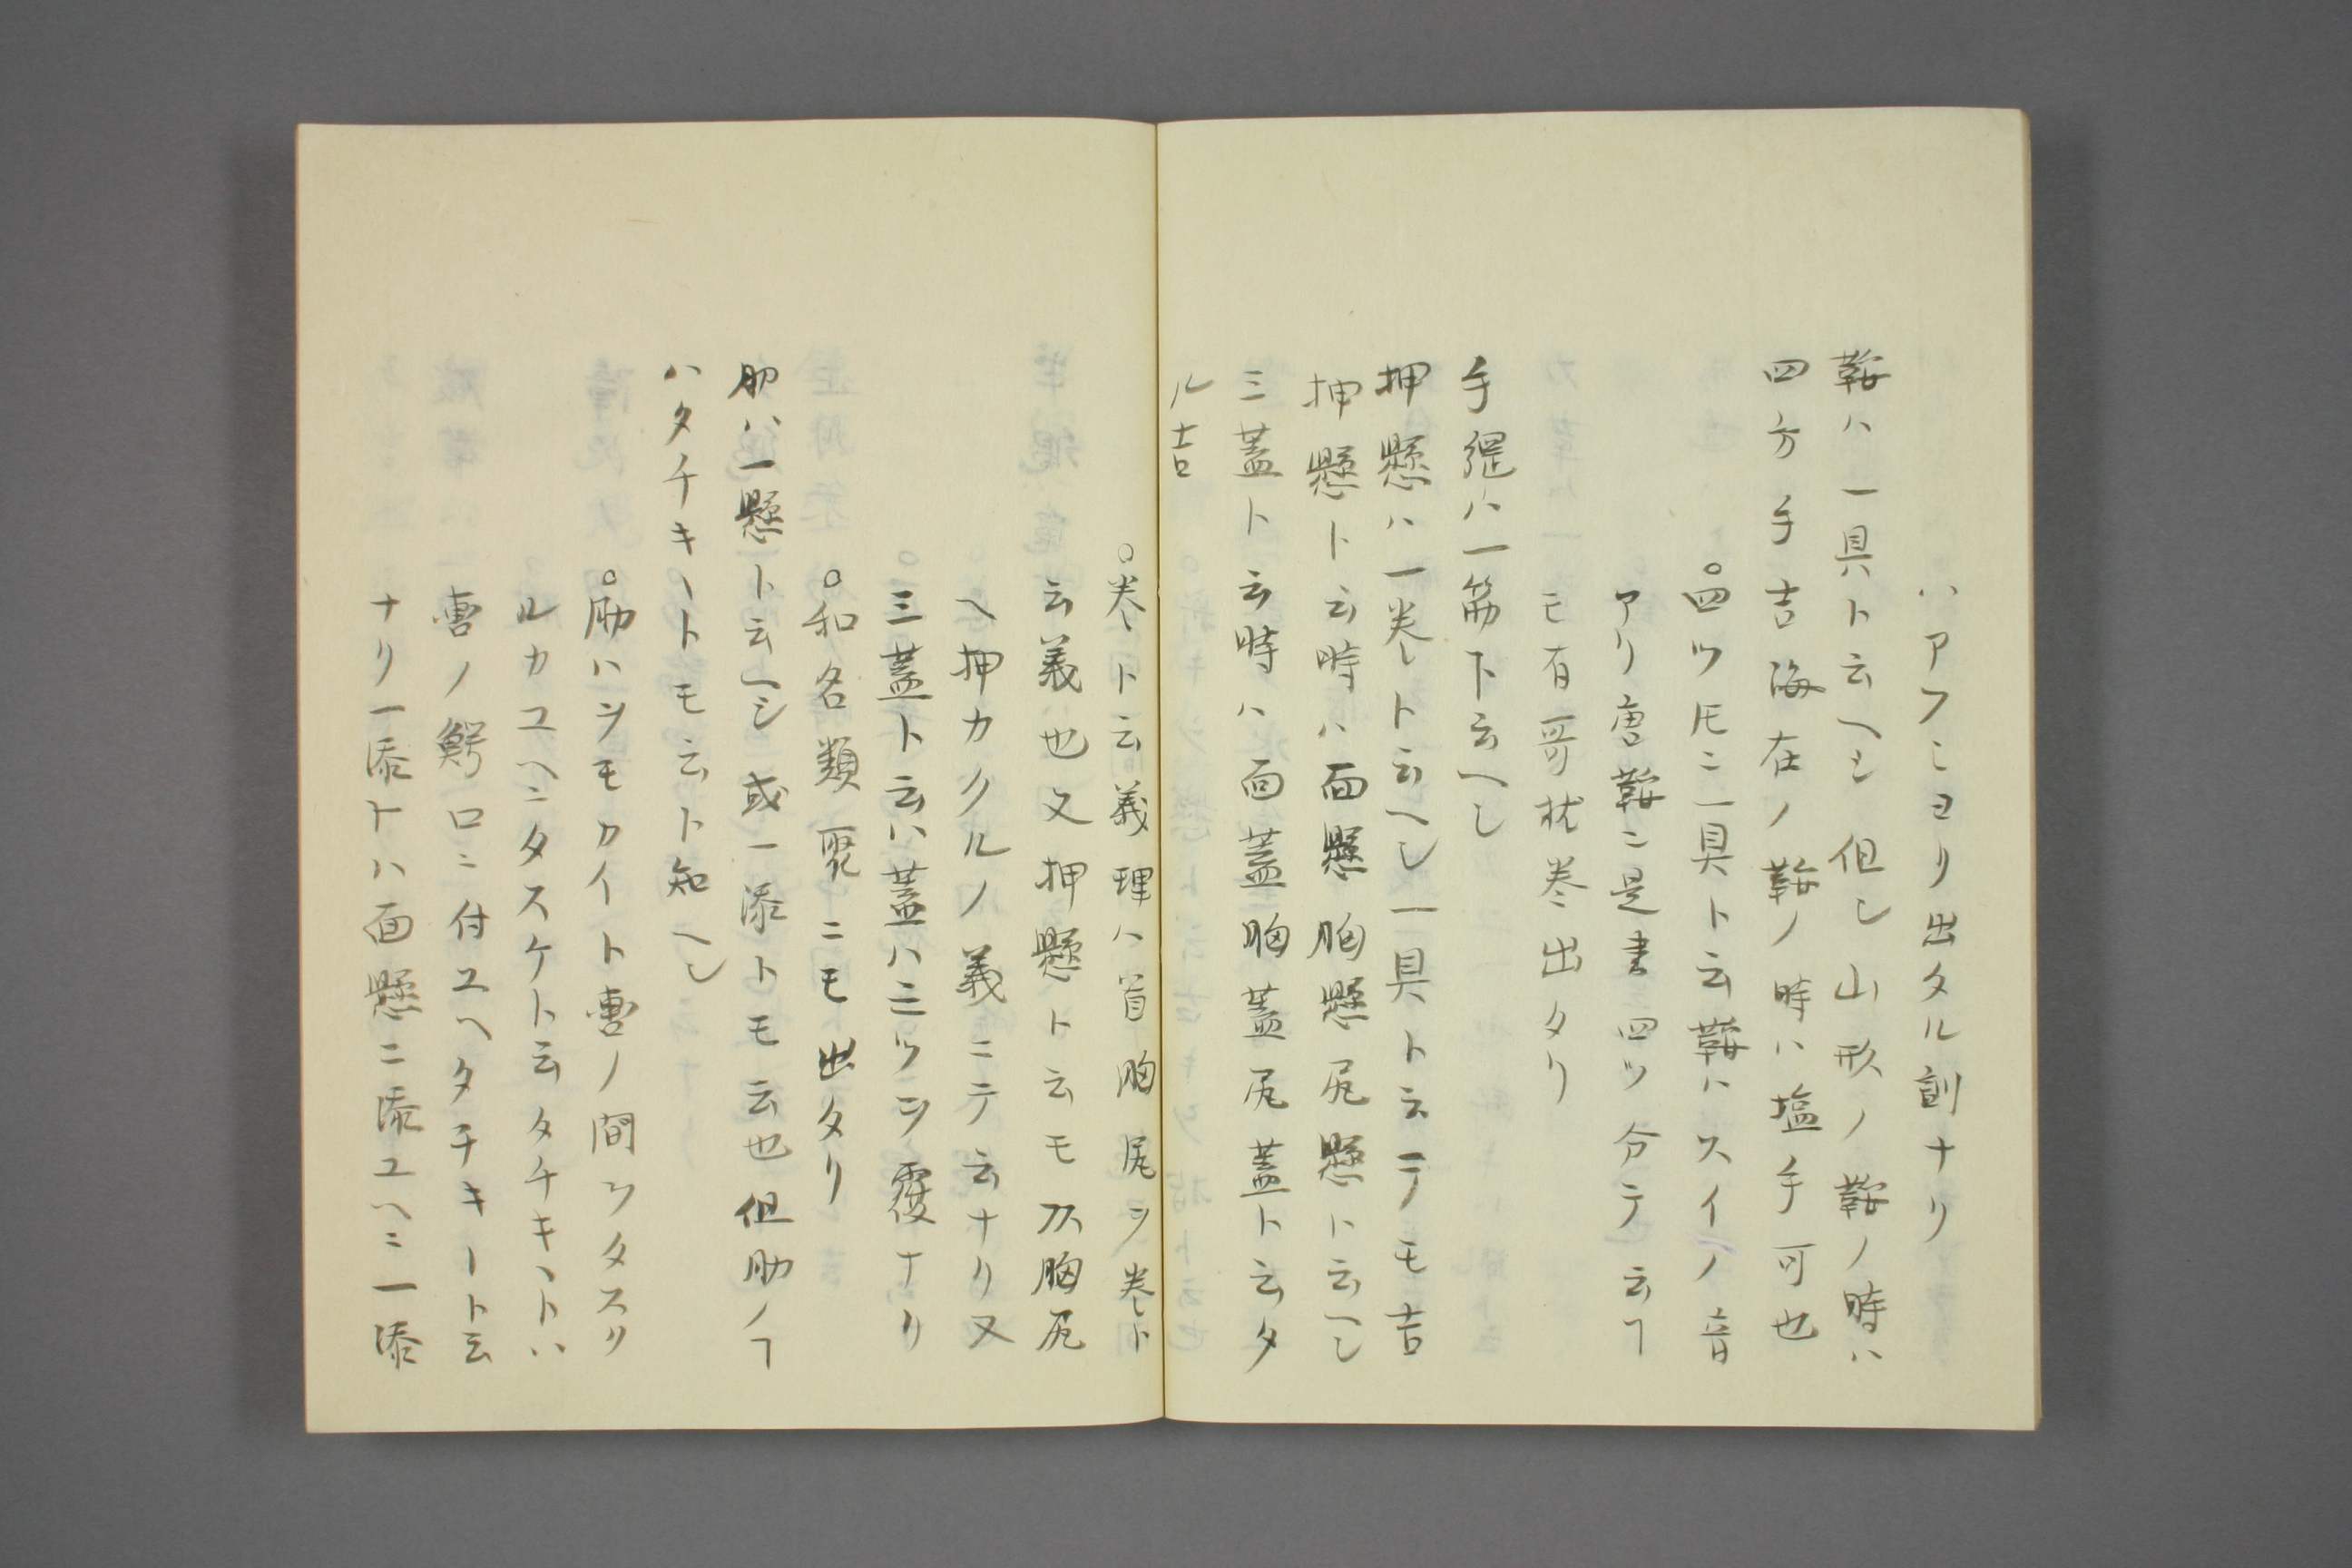 ハアフミヨリ出タル訓ナリ
鞍ハ一具ト云ヘシ但シ山形ノ鞍ノ時ハ
四方手吉海在ノ鞍ノ時ハ塩手可也
○四ツ圧ニ一具ト云鞍ハスイノ音
アリ唐鞍ニ是書四ツ分テ云ヿ
モ有哥枕巻出タリ
手縄ハ一筋ト云ヘし
押懸ハ一巻ト云ヘし一具ト云テモ吉
押懸ト云時ハ面懸胸懸尻懸ト云ヘし
三蓋ト云時ハ面蓋胸蓋尻蓋ト云タ
ル吉
○巻ト云義理ハ首胸尻ヲ巻ト
云義也又押懸ト云モ胸尻
ヘ押カクルノ義ニテ云ナリ又
三蓋ト云ハ蓋ハ三ツヲ覆ナリ
○和名類聚ニモ出タリ
肋ハ一懸ト云ヘシ或一添トモ云也但肋ノヿ
ハタチキヽトモ云ト知ヘし
○肋ハヲモカイト轡ノ間ヲタスク
ルカユヘニタスケト云タチキヽトハ
轡ノ鰐口ニ付ユヘタチキヽト云
ナリ一添トハ面懸ニ添ユヘニ一添